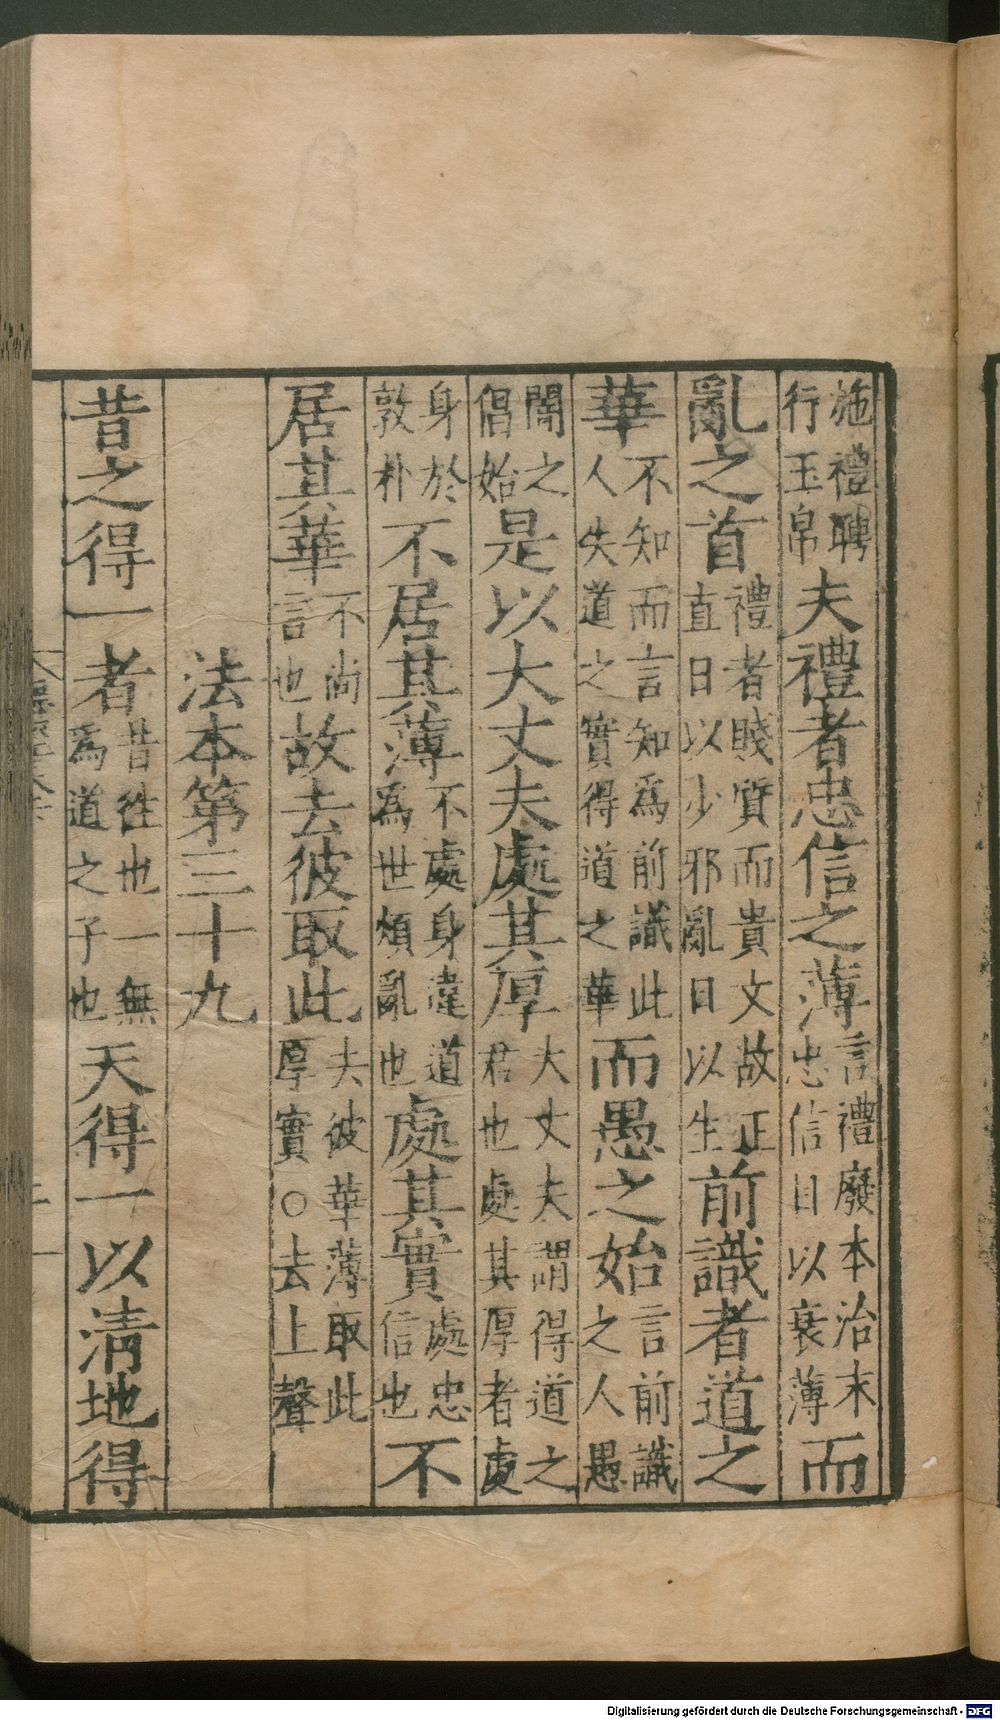 施禮聘行玉帛夫禮者忠信之薄言禮廢本治末忠信日以衰薄而
亂之首禮者賤質而貴文故正直日以少邪亂日以生前識者道之
華不知而言知為前識此人失道之實得道之華而愚之始言前識之人愚
闇之倡始是以大丈夫處其厚大丈夫謂得道之君也處其厚者處
身於敦朴不居其薄不處身違道為世煩亂也處其實處忠信也不
居其華不尚言也故去彼取此夫彼華薄取此厚實○去上聲
法本第三十九
昔之得一者昔徃也一無為道之子也天得一以清地得
Digitalisierung gefördert durch die Deutsche Forschungsgemeinschaft - DFG